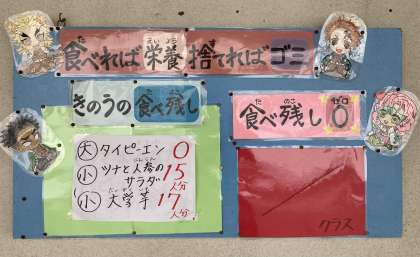 食べれば栄養捨てればゴミ
きのうの食べ残し
大 タイピーエン 0
小 ツナと人参のサラダ 15人分
小 大学芋 17人分
食べ残し0
クラス